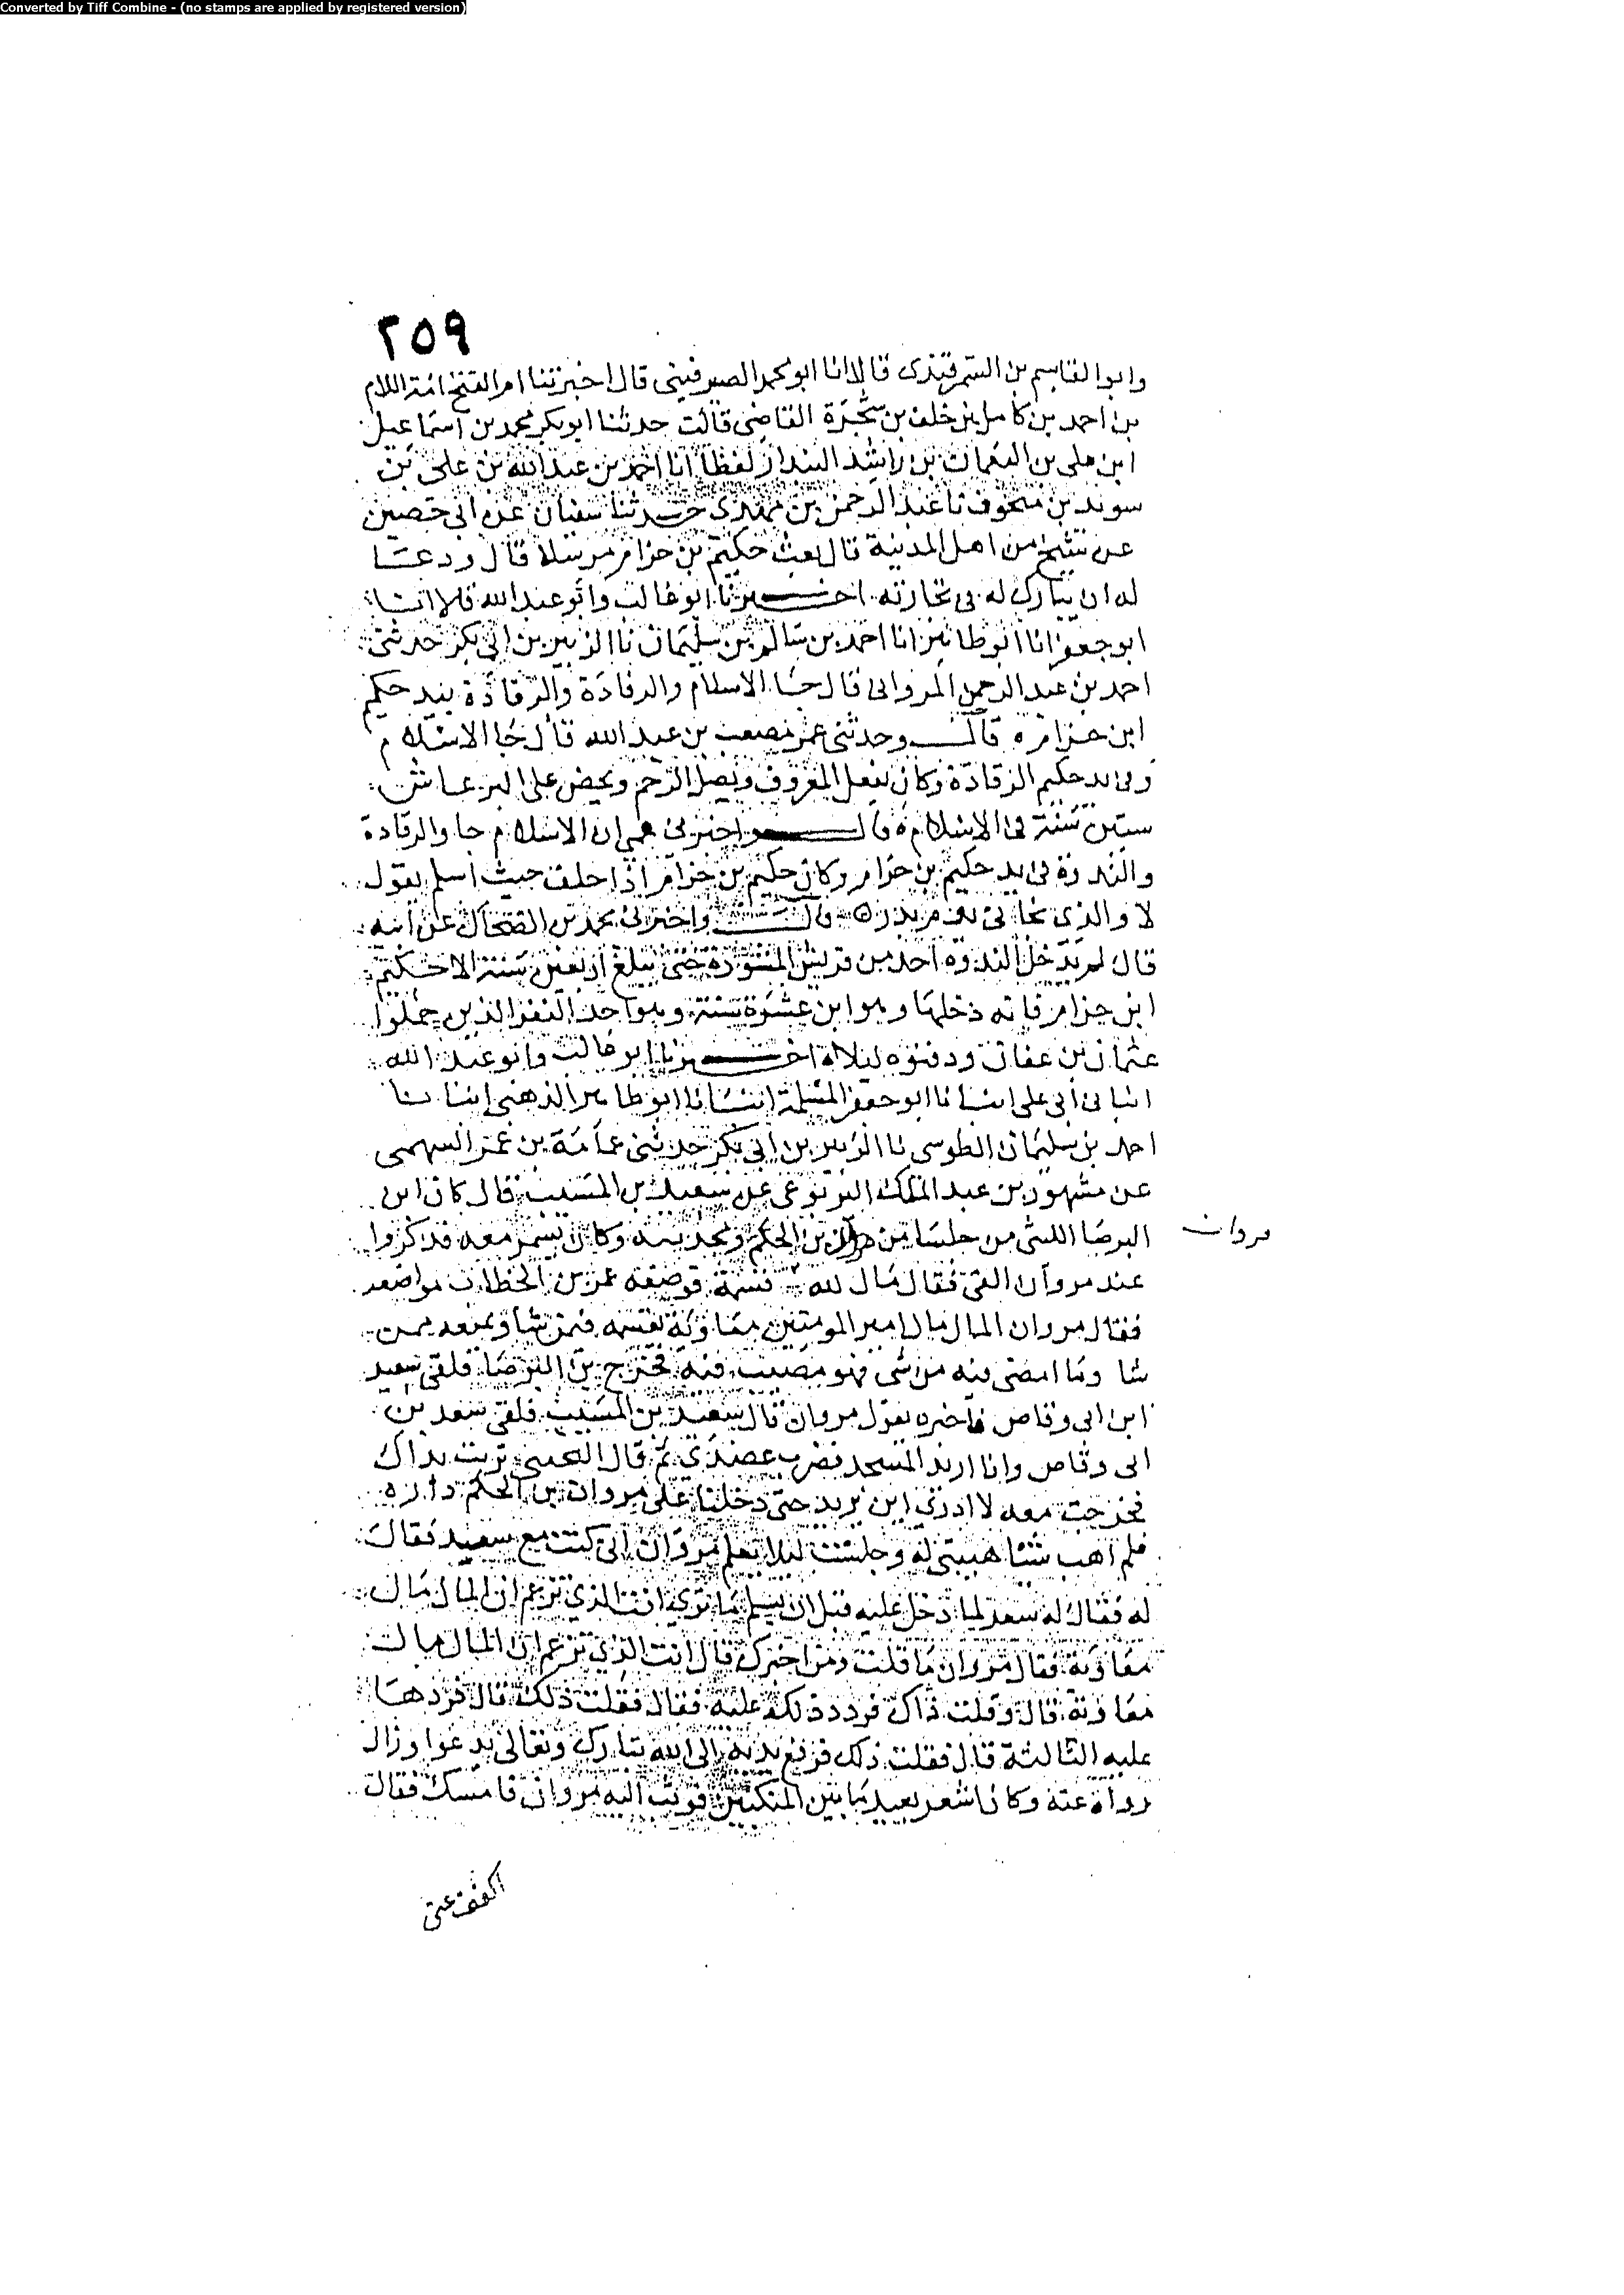 Converted by Tiff Combine - (no stamps are applied by registered version)
٢٥٩
وابوالقاسم بن السمرقندى قالا انا ابو محمد الصريفينى قال اخبرتنا ام الفتح امة السلام
بن احمد بن كامل بن خلف بن شجرة القاضى قالت حدثنا ابو بكر محمد بن اسماعيل
ابن على بن النعمان بن راشد البندار لفظا انا احمد بن عبد الله بن على بن
سويد بن منجوف نا عبد الرحمن بن مهدى حدثنا سفيان عن ابى حصين
عن شيخ من اهل المدينة قال بعث حكيم بن حزام مرسلا قال ودعا
له ان يبارك له فى تجارته اخبرنا ابو غالب وابو عبد الله قالا انا
ابو جعفر انا ابو طاهر انا احمد بن سالم بن سليمان نا الزبير بن ابى بكر حدثنى
احمد بن عبد الرحمن المروانى قال جا الاسلام والرفادة والرفادة بيد حكيم
ابن حزام ه قال وحدثنى عمى مصعب بن عبد الله قال جا الاسلام
وفى يد حكيم الرفادة وكان يفعل المعروف ويصل الرحم ويحض على البر عاش
ستين سنة فى الاسلام ه قال واخبرنى عمى ان الاسلام جا والرفادة
والندوة فى يد حكيم بن حزام وكان حكيم بن حزام اذا حلف حيث اسلم يقول
لا والذى نجانى يوم بدر ه قال واخبرنى محمد بن الضحاك عن ابيه
قال لم يدخل الندوة احد من قريش للمشورة حتى يبلغ اربعين سنة الا حكيم
ابن حزام فانه دخلها وهو ابن عشرة سنة وهو احد النفر الذين حملوا
عثمان بن عفان ودفنوه ليلا ه اخبرنا ابو غالب وابو عبد الله
ابنا ابى على انبانا ابو جعفر المسلمة انبانا ابو طاهر الذهبى انبانا
احمد بن سليمان الطوسى نا الزبير بن ابى بكر حدثنى عمامة بن عمر السهمى
عن مشهور بن عبد الملك اليربوعى عن سعيد بن المسيب قال كان ابن
البرصا الليثى من جلسا من مروان بن الحكم ومحدثيه وكان يسمر معه فذكروا
مروان
عند مروان الفى فقال مال لله قسمة فوضعه عمر بن الخطاب مواضعه
فقال مروان المال مال امير المومنين معاوية يقسمه فيمن شا ويمنعه ممن
شا وما امضى فيه من شى فهو مصيب فيه فخرج بن البرصا فلقى سعيد
ابن ابى وقاص فاخبره بقول مروان قال سعيد بن المسيب فلقى سعد بن
ابى وقاص وانا اريد المسجد فضرب عضدى ثم قال الحقنى تربت يداك
فخرجت معه لا ادرى اين يريد حتى دخلنا على مروان بن الحكم داره
فلم اهب شيئا هيبتى له وجلست ليلا يعلم مروان انى كنت مع سعيد فقال
له فقال له سعد لما دخل عليه قبل ان يسلم ما ترى انت الذى تزعم ان المال مال
معاوية فقال مروان ما قلت ومن اخبرك قال انت الذى تزعم ان المال مال
معاوية قال وقلت ذاك فردد ذلك عليه فقال فقلت ذلك قال فردها
عليه الثالثة قال فقلت ذلك فرفع يديه الى الله تبارك وتعالى يدعوا وزال
رداه عنه وكان اشعر بعيد ما بين المنكبين فوثب اليه مروان فامسك فقال
اكفف عنى